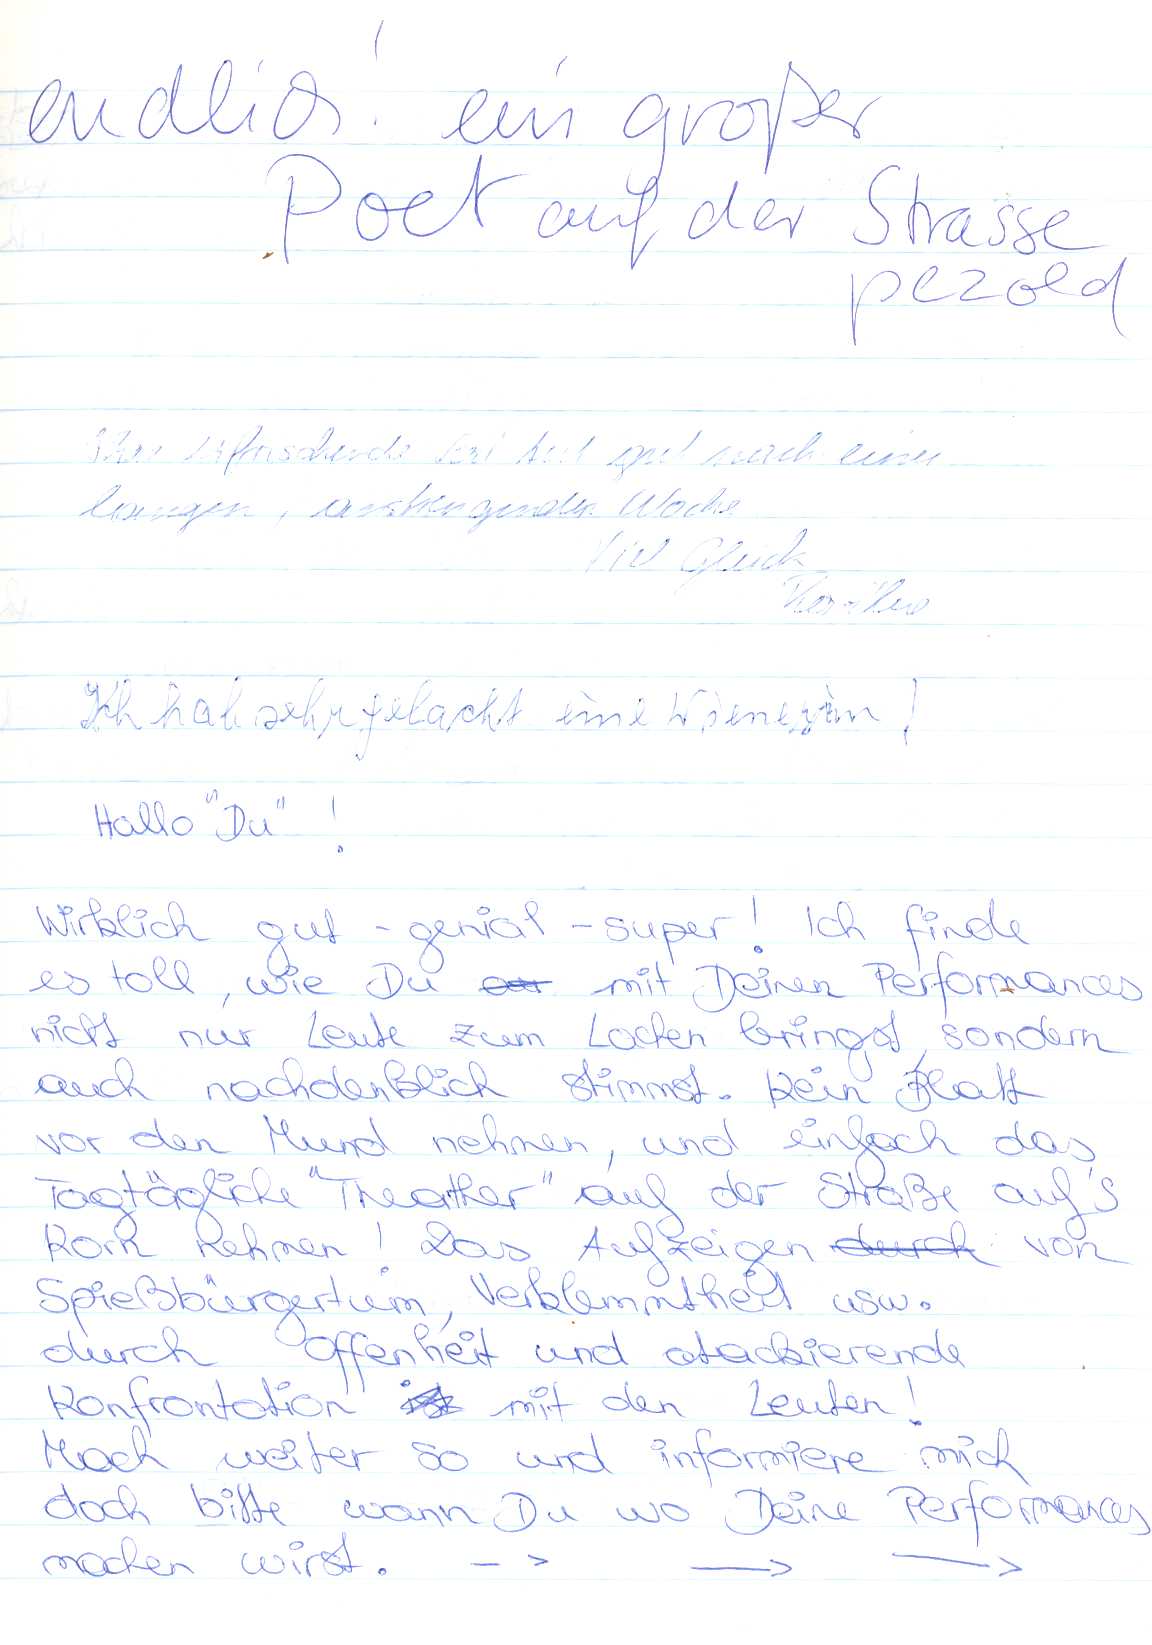 endlich! ein großer
Poet auf der Strasse
pezold
Ihre erfrischende Art tut gut nach einer
langen, anstrengenden Woche
Viel Glück
Ich hab sehr gelacht eine Wienerin!
Hallo "Du" !
Wirklich gut - genial - super! Ich finde
es toll, wie Du mit Deinen Performances
nicht nur Leute zum Lachen bringst, sondern
auch nachdenklich stimmst. Kein Blatt
vor den Mund nehmen, und einfach das
Tagtägliche "Theather" auf der Straße auf's
Korn nehmen! Das Aufzeigen durch von
Spießbürgertum, Verklemmtheit usw.
durch Offenheit und atackierende
Konfrontation mit den Leuten!
Mach weiter so und informiere mich
doch bitte wann Du wo Deine Performances
machen wirst. -> -> ->